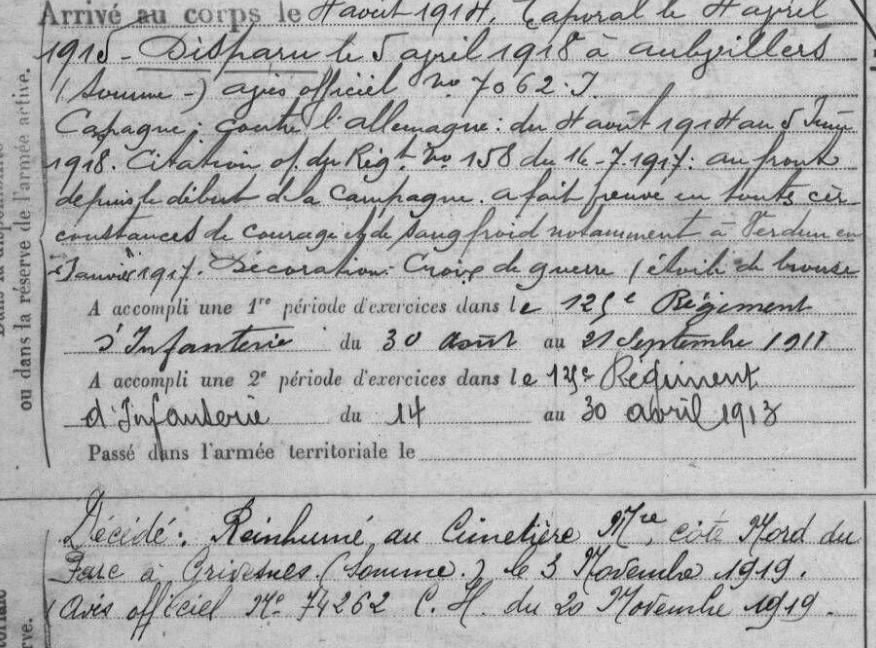 Arrivé au corps le 4 août 1914. Caporal le 4 avril
1915 - Disparu le 5 avril 1918 à aubvillers
(Somme -) avis officiel No 7062. T.
Capagne: contre l'allemagne: du 4 août 1914 au 5 Juin
1918. Citation o/. du Régt. No 158 du 16-7-1917: au front
depuis le début de la campagne. a fait preuve en toutes cir-
constances de courage et de sang froid notamment à Verdun en
Janvier 1917. Décoration: Croix de guerre (étoile de bronze
A accompli une 1re période d'exercices dans le 125e Régiment
d'Infanterie du 30 août au 21 Septembre 1911
A accompli une 2e période d'exercices dans le 125e Régiment
d'Infanterie du 14 au 30 avril 1913
Passé dans l'armée territoriale le
Décédé: Reinhumé au Cimetière Mre, côté Nord du
Parc à Grivesnes (Somme.) le 3 Novembre 1919.
(Avis officiel No 74262 C. H. du 20 Novembre 1919.
ou dans la réserve de l'armée active.